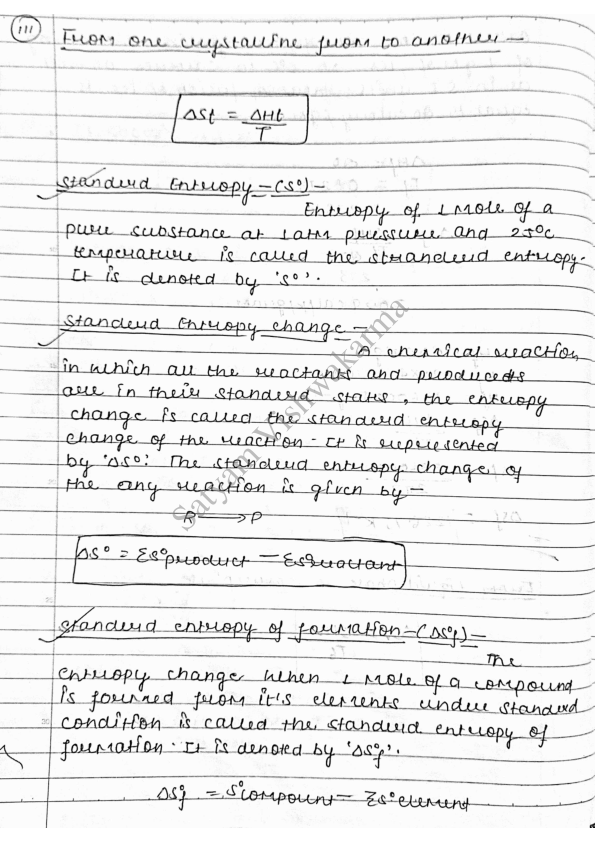 (iii) From one crystalline from to another -
ΔSt = ΔHt / T
Standerd Entropy - (S°) -
Entropy of 1 Mole of a
pure substance at 1 atm pressure and 25°C
temperature is called the stranderd entropy.
It is denoted by 'S°'.
Standerd Entropy change -
A chemical reaction,
in which all the reactants and produceds
are in their standerd stats, the entropy
change is called the standerd entropy
change of the reaction. It is represented
by 'ΔS°'. The standerd entropy change of
the any reaction is given by -
R ⟶ P
ΔS° = ΣS°product - ΣS°reactant
Standerd entropy of formation - (ΔS°f) -
The
entropy change when 1 mole of a compound
is formed from it's elements under standerd
condition is called the standerd entropy of
formation. It is denoted by 'ΔS°f'.
ΔS°f = S°compount - ΣS°element
Satyam Vishwakarma